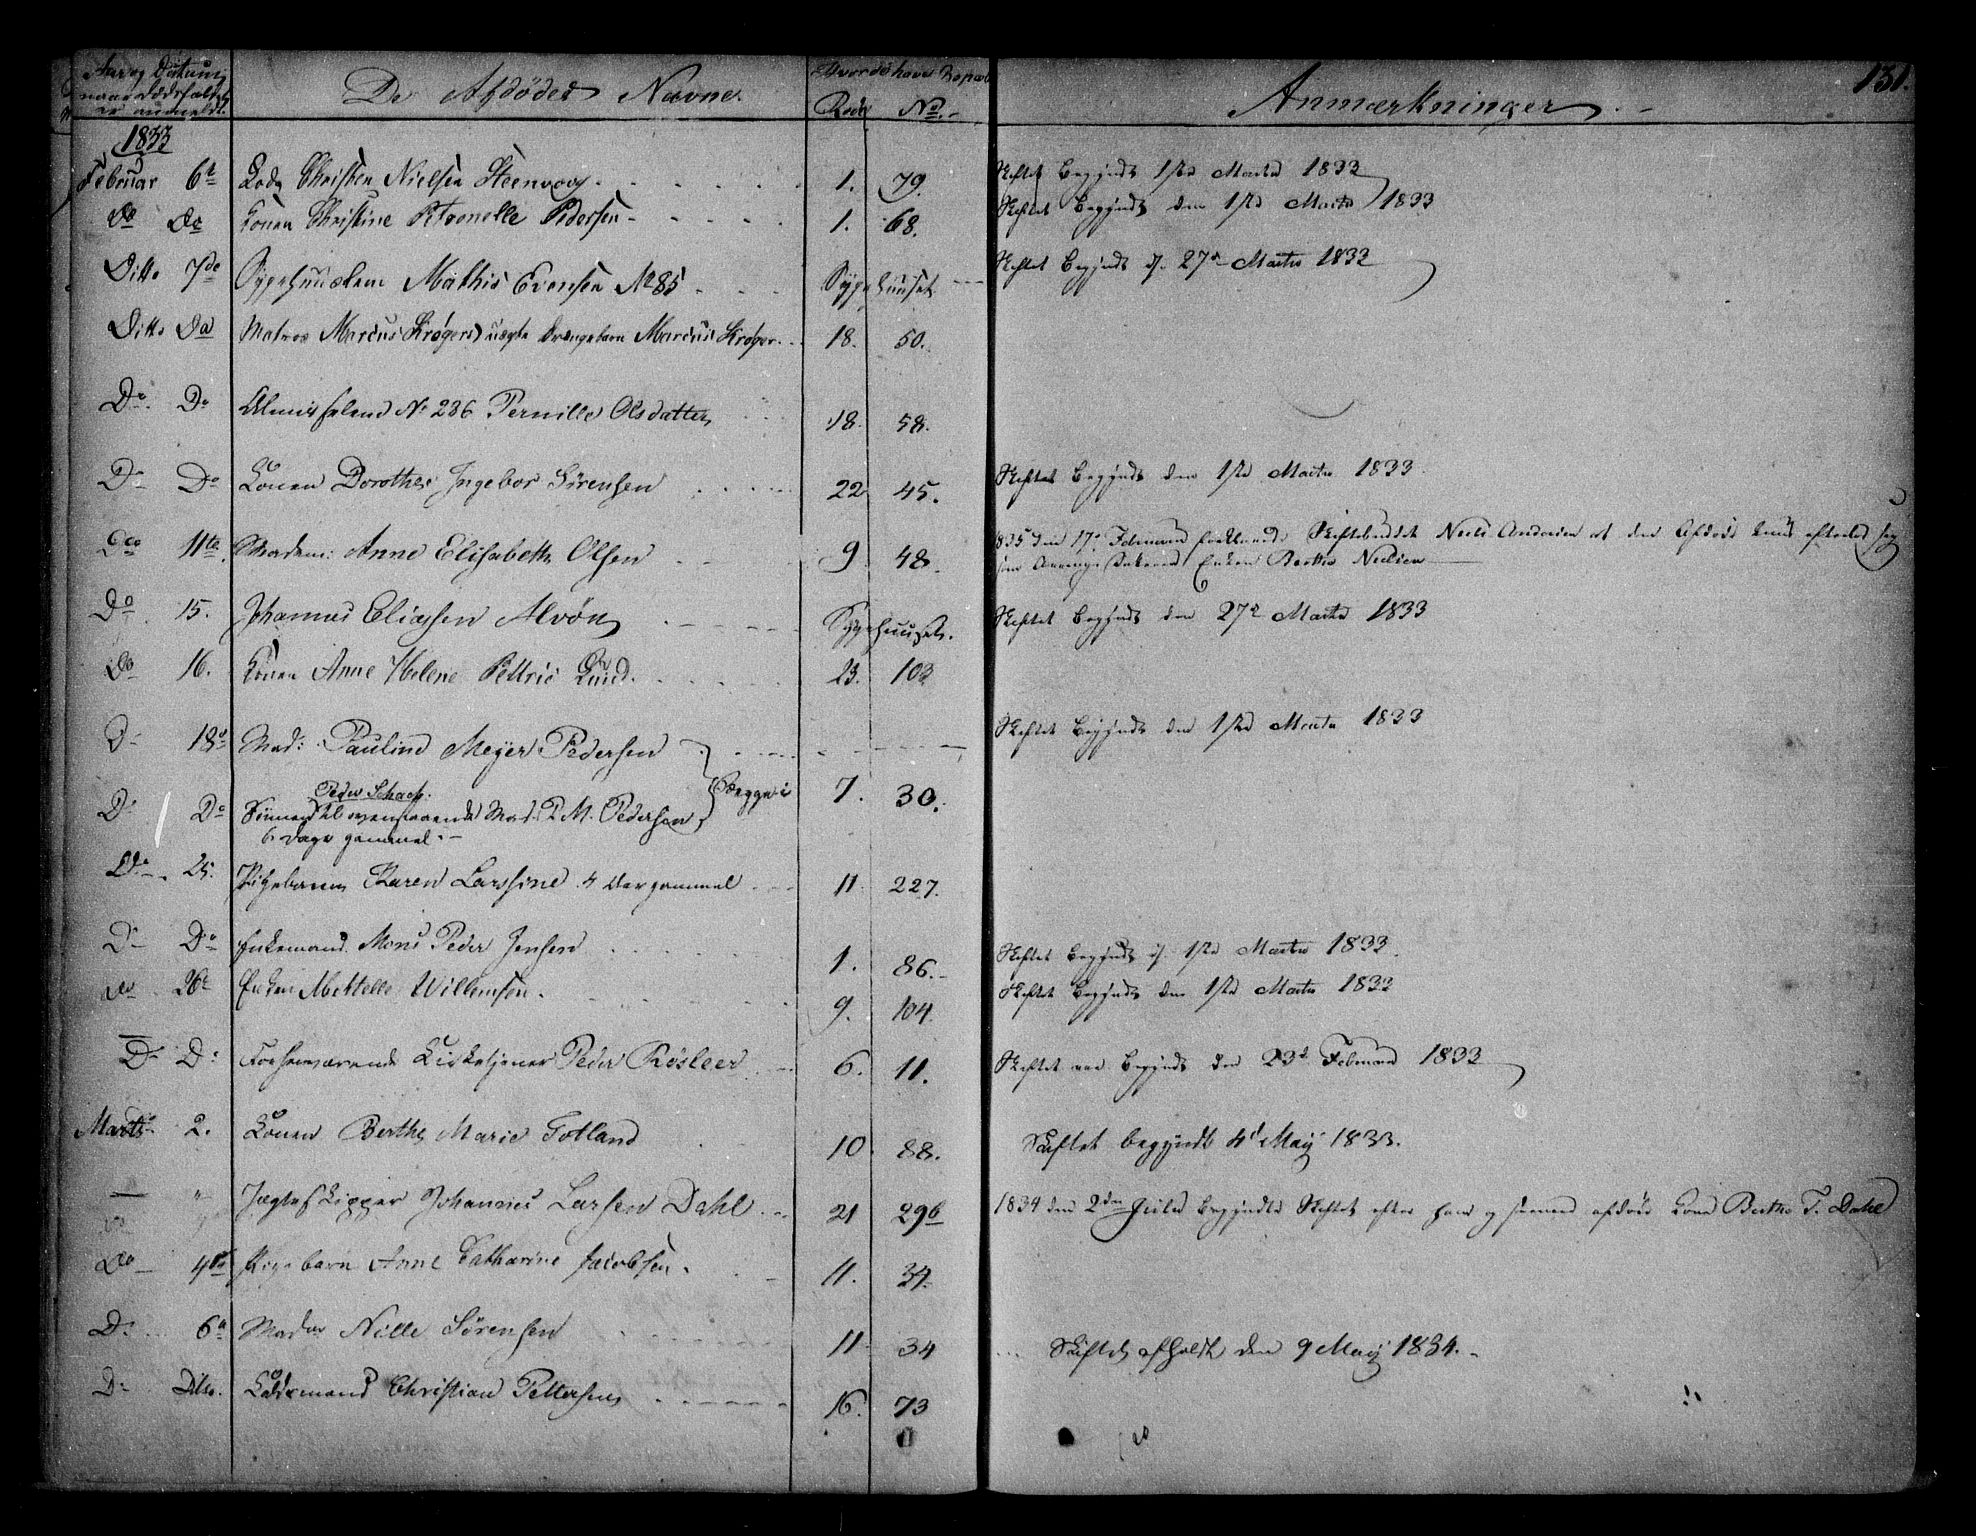 131.
Aar og Datum
naar Dødsfaldet
er anmeldt.
De Afdødes Navne.
Hvor de have Boepæl
Rode No.
Anmærkninger.
1833
Februar 6te Lods Christen Nielsen Steenvoog 1. 79. Skiftet begyndt 1ste Martz 1833
Do Do Konen Christine Petronelle Pedersen 1. 68. Skiftet begyndt den 1ste Martz 1833
Ditto 7de Sygehuuslem Mathis Evensen No 85 Sygehuuset Skiftet begyndt d. 27de Martz 1833
Ditto Do Matros Marcus Krøgers uægte Drengebarn Marcus Krøger 18. 50.
Do. Do Almisselem No 286 Pernille Olsdatter 18. 58.
Do Do Konen Dorothea Ingebor Sørensen 22 45. Skiftet begyndt den 1ste Martz 1833.
Do 11te Madam: Anne Elisabeth Olsen 9 48. 1835 den 17de Februar Skiftebudet Niels Andersen at den Afdøde
som Enken Berthe Nielsen
Do 15. Johannes Eliassen Alvøn Sygehuuset. Skiftet begyndt den 27de Martz 1833
Do 16. Konen Anne Helene Pettrie Lund. 23. 103
Do 18de Mad: Pauline Meyer Pedersen Skiftet begyndt den 1ste Martz 1833
Peder Schach.
Do Do Sønnen til ovenstaaende Mad. P. M. Pedersen Begge i 7. 30.
6 Dage gammel.
Do 25. Pigebarn Karen Larssine 4 Aar gammel 11 227.
Do Do Enkemand Mons Peder Jensen 1. 86. Skiftet begyndt d. 1ste Martz 1833.
Do 26de Enken Mettelle Willemsen. 9. 104. Skiftet begyndt den 1ste Martz 1833
Do Do Forhenværende Kirketjener Peder Røsleer 6. 11. Skiftet var begyndt den 23de Februar 1833
Marts 2. Konen Berthe Marie Totland 10 88. Skiftet begyndt 4d May 1833.
— " Jægteskipper Johannes Larsen Dahl 21 296 1834 den 2den Juli begyndte Skiftet efter ham og afdøde Kone Berthe T. Dahl
Do 4de Pigebarn Anne Catharine Jacobsen. 11. 34.
Do 6te Madam Nille Sørensen 11 34 Skiftet afholdt den 9 May 1834.
Do Ditto. Christian Pettersen 16. 73